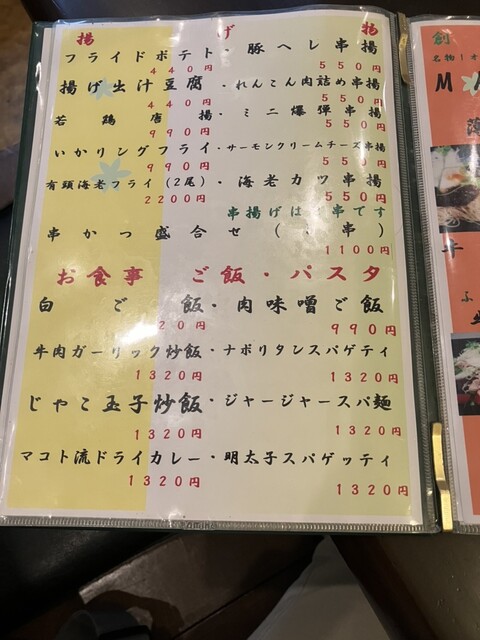 揚げ物
フライドポテト・豚ヘレ串揚
440円 550円
揚げ出汁豆腐・れんこん肉詰め串揚
440円 550円
若鶏唐揚・ミニ爆弾串揚
990円 550円
いかリングフライ・サーモンクリームチーズ串揚
990円 550円
有頭海老フライ(2尾)・海老カツ串揚
2200円 550円
串揚げは 串です
串かつ盛合せ( 串)
1100円
お食事 ご飯・パスタ
白ご飯・肉味噌ご飯
20円 990円
牛肉ガーリック炒飯・ナポリタンスパゲティ
1320円 1320円
じゃこ玉子炒飯・ジャージャースパ麺
1320円 1320円
マコト流ドライカレー・明太子スパゲッティ
1320円 1320円
創
名物!オ
M
牛
ふ